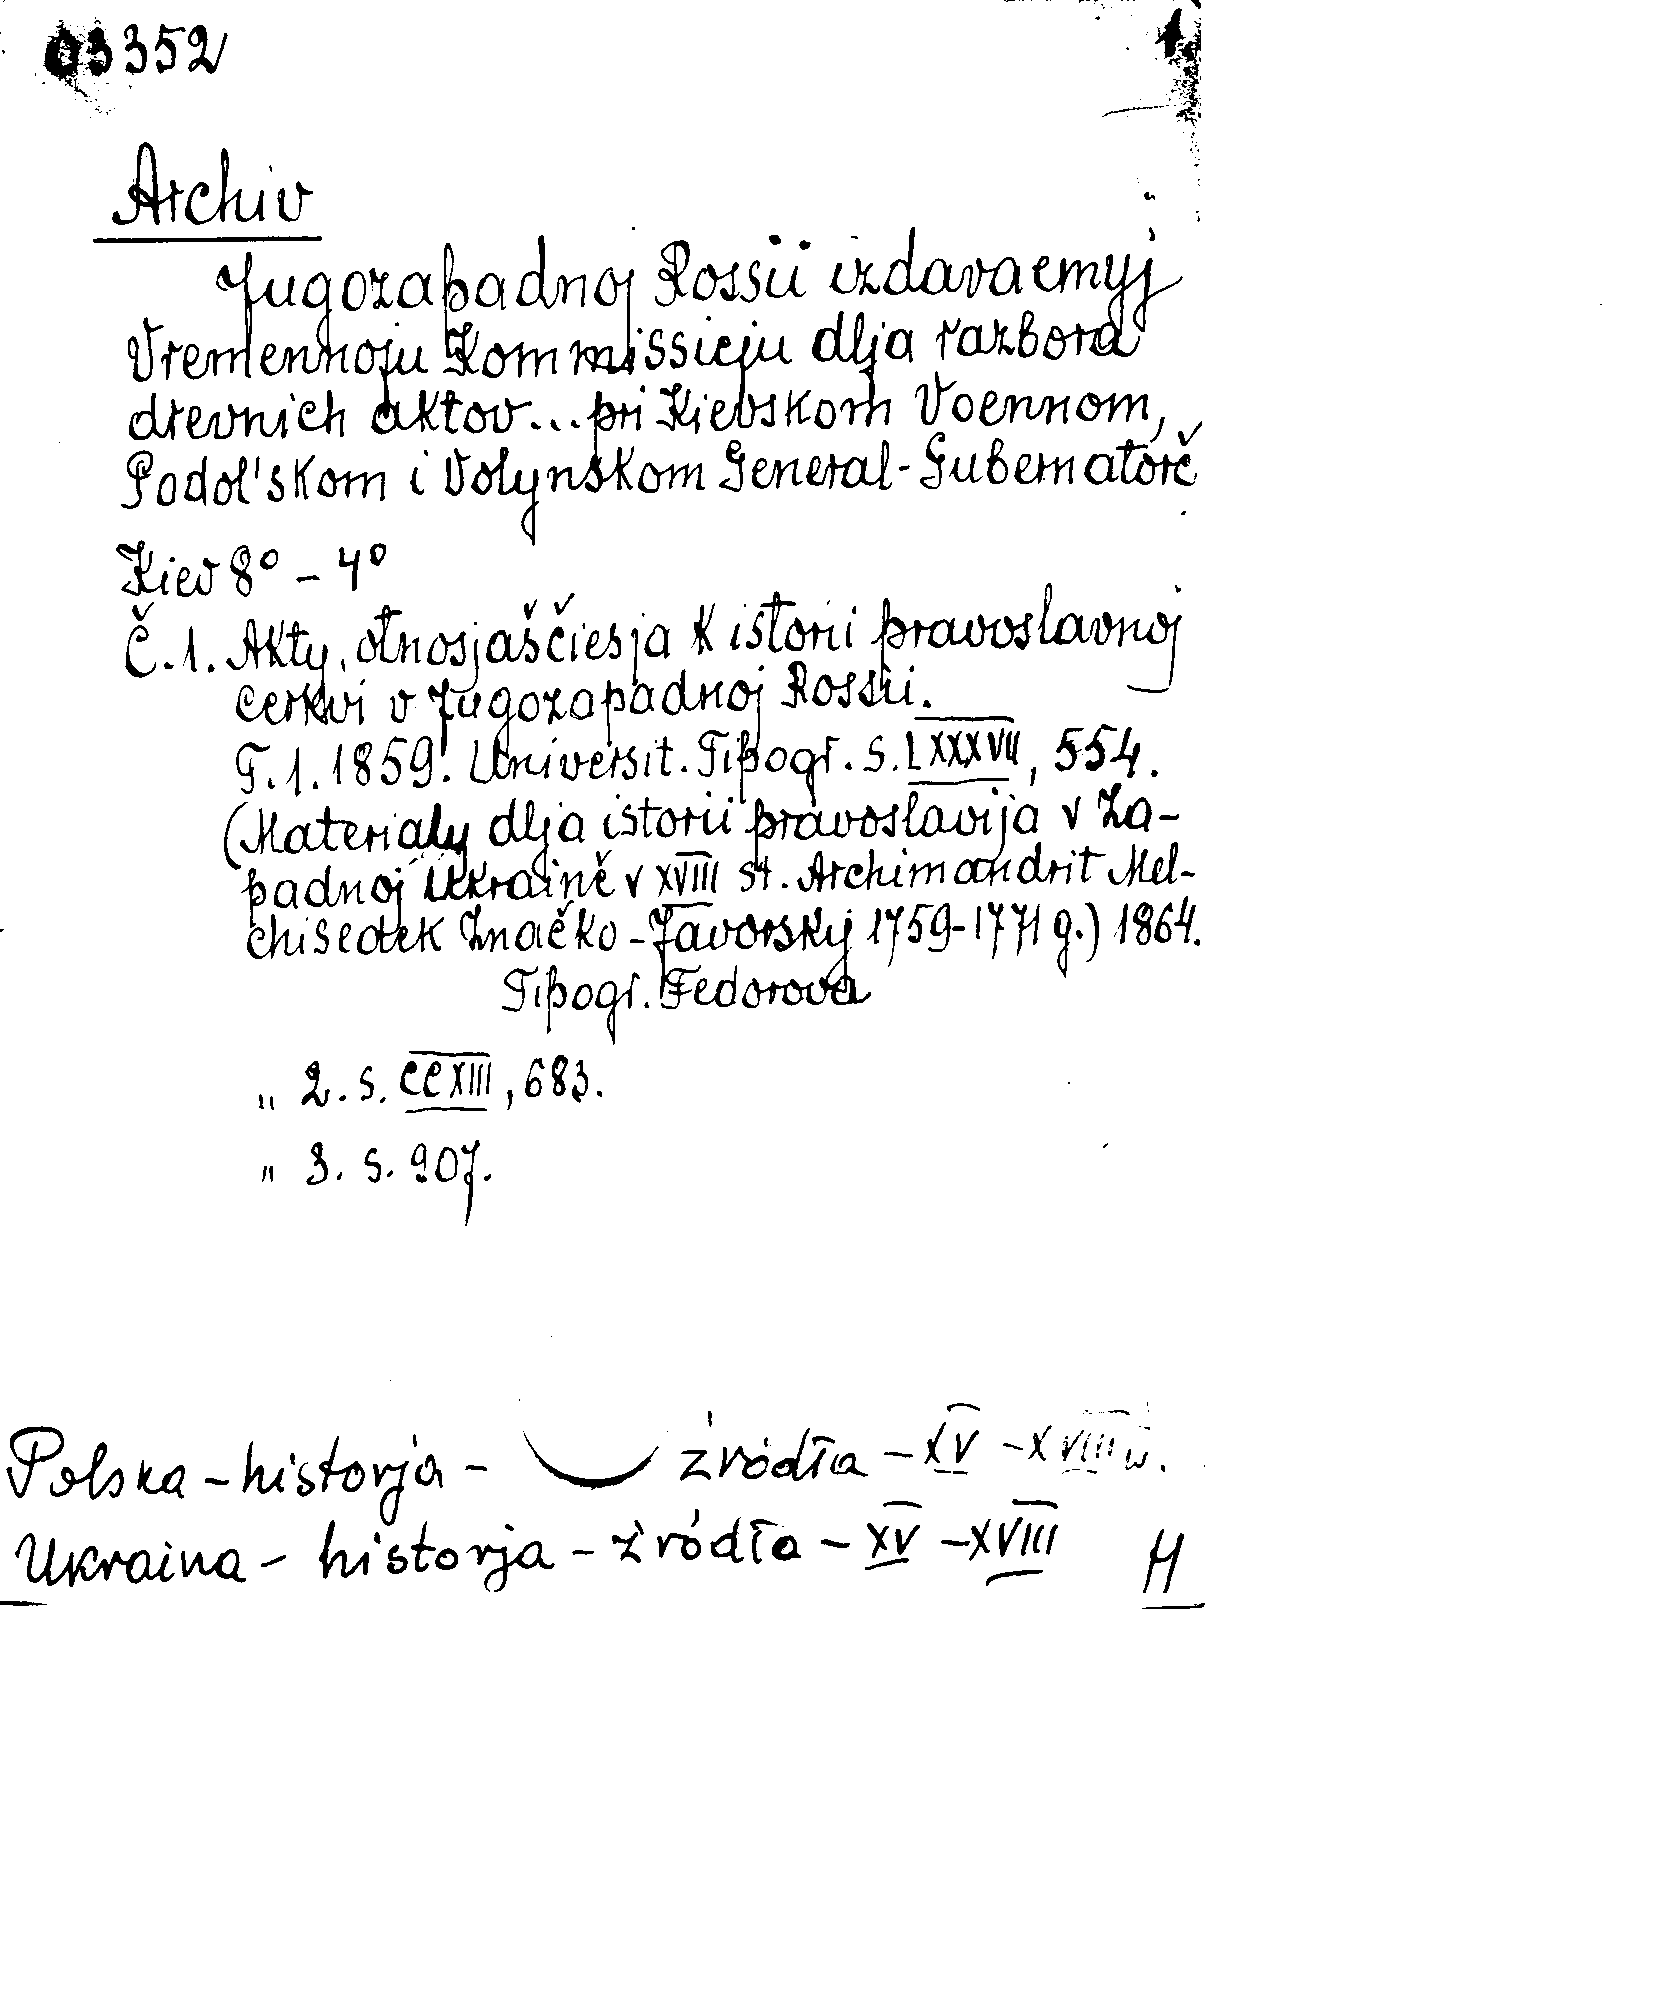 03352
1.
Archiv
Jugozapadnoj Rossii izdavaemyj
Vremennoju Kommissieju dlja razbora
drevnich aktov... pri Kievskom Voennom,
Podol'skom i Volynskom General-Gubernatorě
Kiev 8° - 4°
Č.1. Akty, otnosjaščiesja k istorii pravoslavnoj
cerkvi v Jugozapadnoj Rossii.
T.1. 1859. Universit. Tipogr. s. LXXXVII, 554.
(Materialy dlja istorii pravoslavija v Za-
padnoj Ukraině v XVIII st. Archimandrit Mel-
chisedek Značko-Javorskij 1759-1771 g.) 1864.
Tipogr. Fedorova
„ 2. s. CCXIII, 683.
„ 3. s. 907.
Polska - historja - źródła - XV - XVIII w.
Ukraina - historja - źródła - XV - XVIII
H